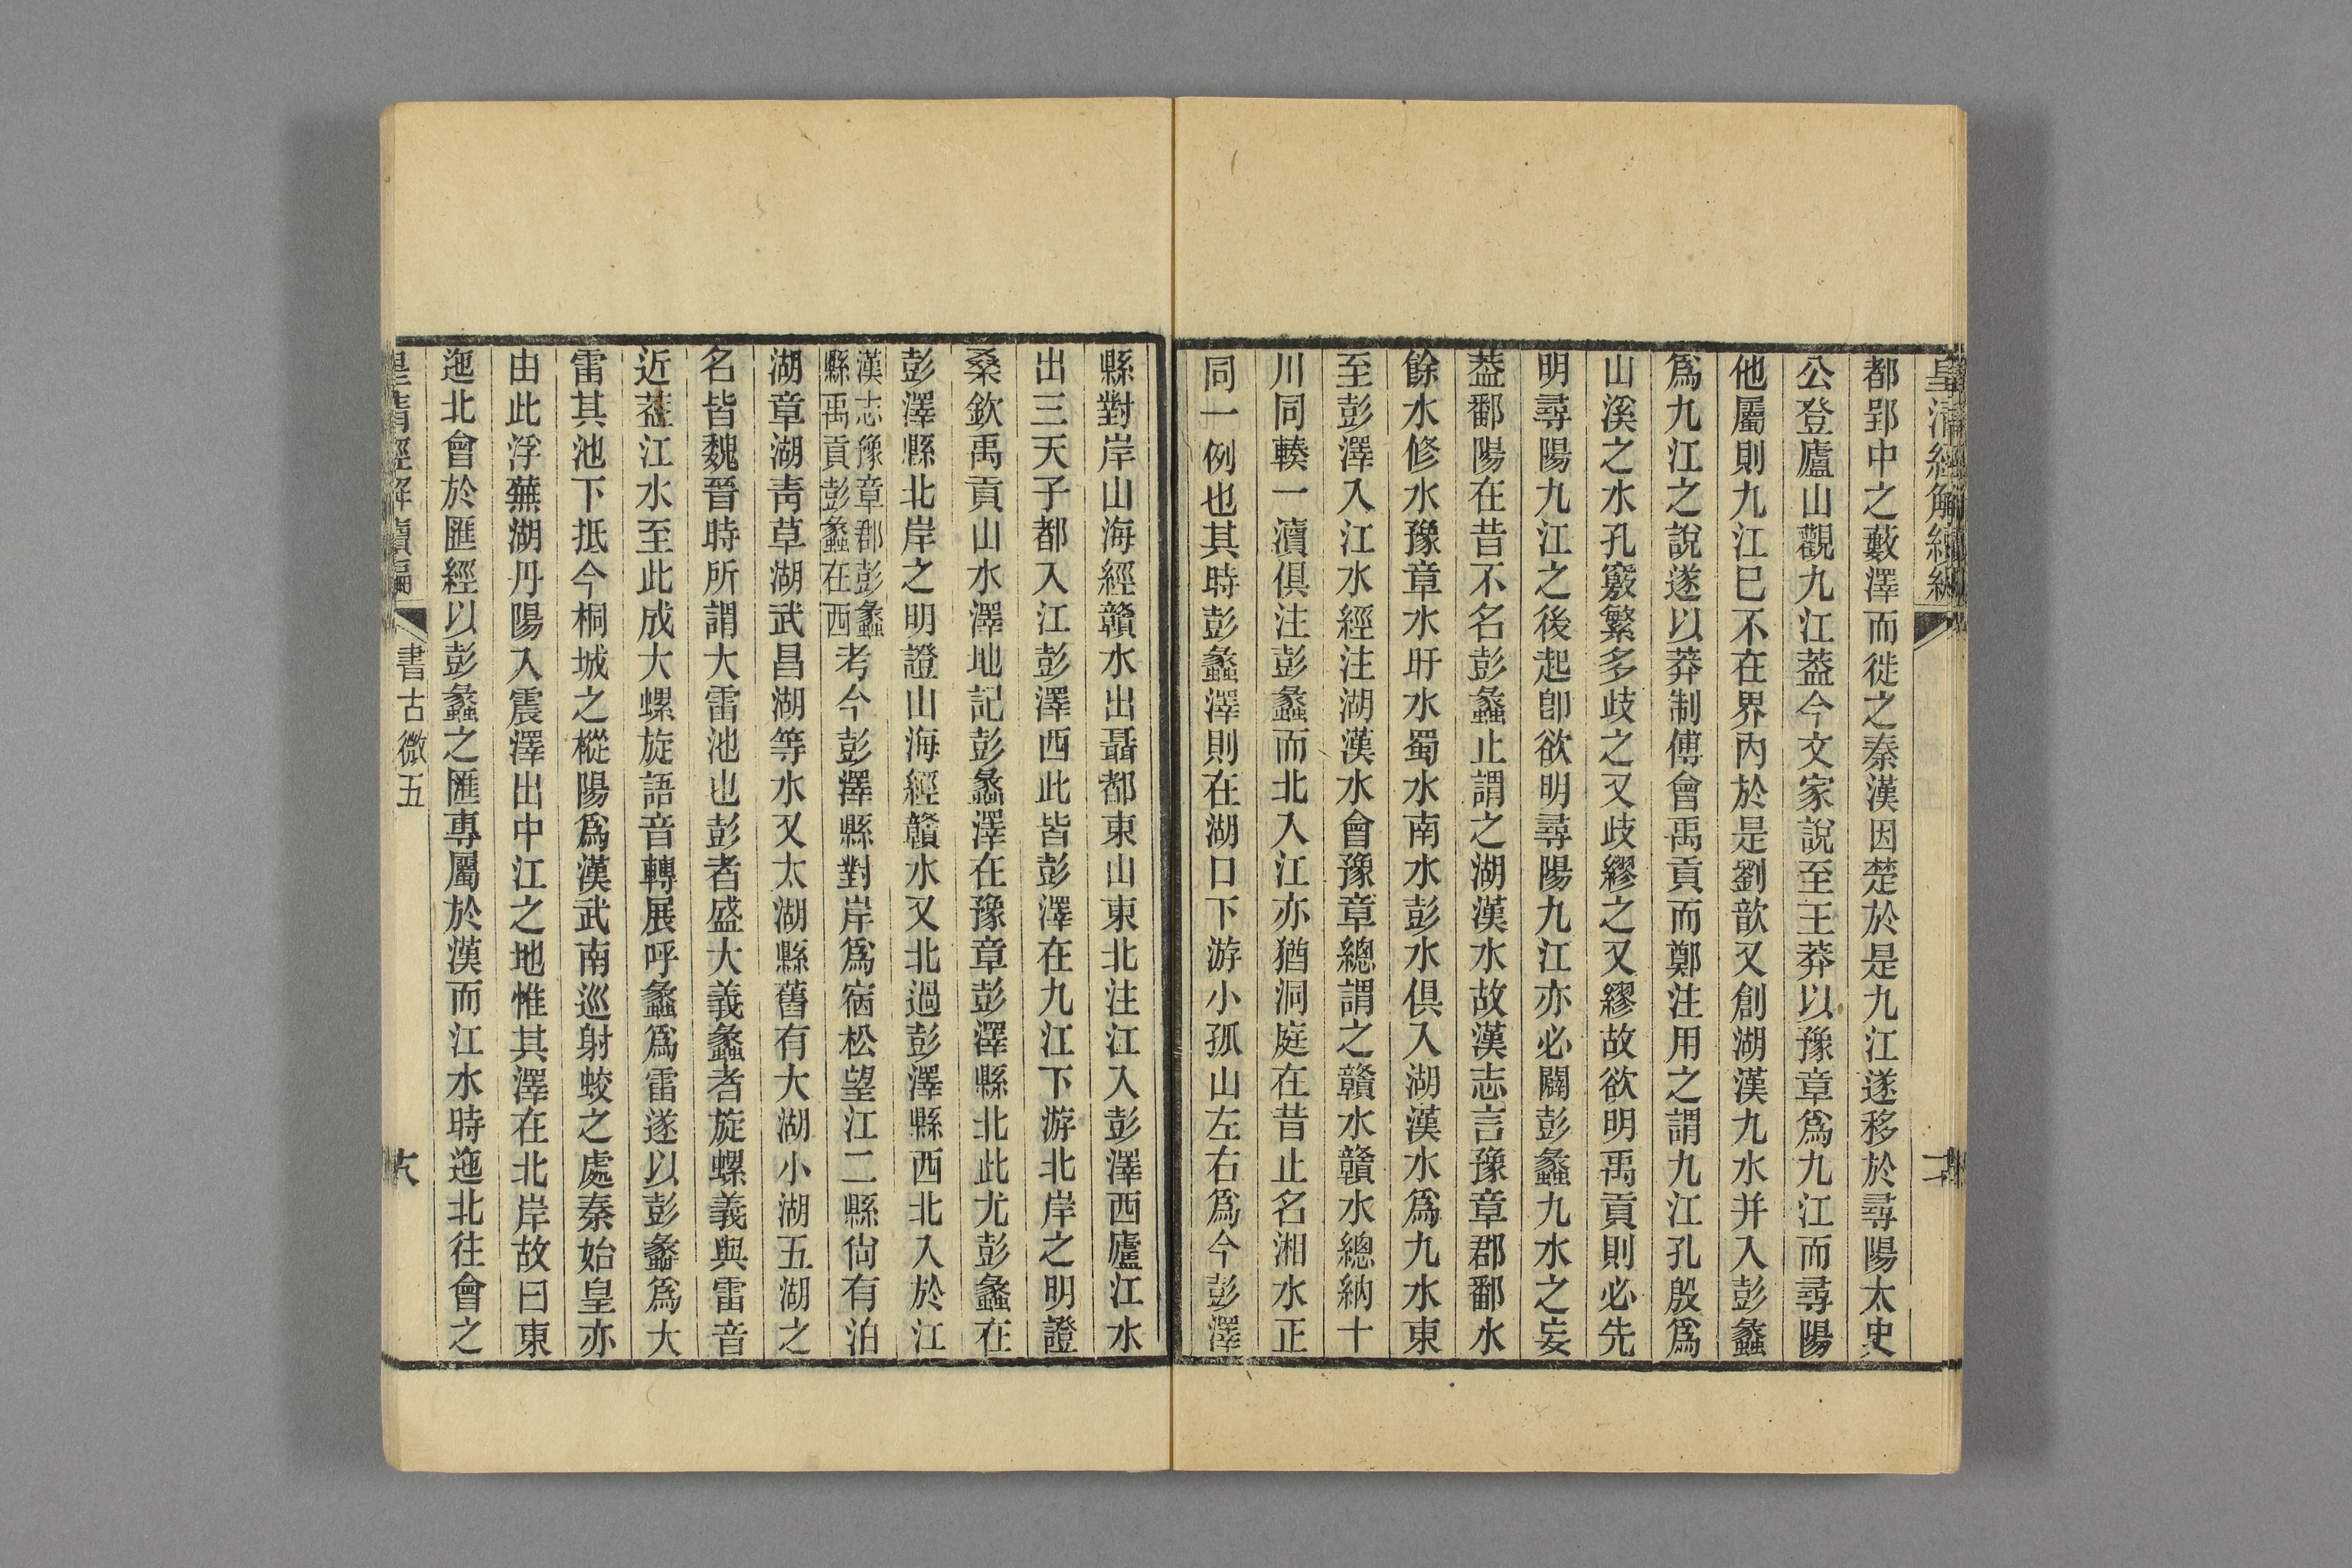 皇清經解續編
都郢中之藪澤而徙之秦漢因楚於是九江遂移於尋陽太史
公登廬山觀九江葢今文家說至王莽以豫章爲九江而尋陽
他屬則九江巳不在界內於是劉歆又創湖漢九水并入彭蠡
爲九江之說遂以莽制傅會禹貢而鄭注用之謂九江孔殷爲
山溪之水孔竅繁多歧之又歧繆之又繆故欲明禹貢則必先
明尋陽九江之後起卽欲明尋陽九江亦必闢彭蠡九水之妄
葢鄱陽在昔不名彭蠡止謂之湖漢水故漢志言豫章郡鄱水
餘水修水豫章水旴水蜀水南水彭水俱入湖漢水爲九水東
至彭澤入江水經注湖漢水會豫章總謂之贛水贛水總納十
川同轃一瀆俱注彭蠡而北入江亦猶洞庭在昔止名湘水正
同一例也其時彭蠡澤則在湖口下游小孤山左右爲今彭澤
縣對岸山海經贛水出聶都東山東北注江入彭澤西廬江水
出三天子都入江彭澤西此皆彭澤在九江下游北岸之明證
桑欽禹貢山水澤地記彭蠡澤在豫章彭澤縣北此尤彭蠡在
彭澤縣北岸之明證山海經贛水又北過彭澤縣西北入於江
漢志豫章郡彭蠡
縣禹貢彭蠡在西
考今彭澤縣對岸爲宿松望江二縣尙有泊
湖章湖靑草湖武昌湖等水又太湖縣舊有大湖小湖五湖之
名皆魏晉時所謂大雷池也彭者盛大義蠡者旋螺義與雷音
近葢江水至此成大螺旋語音轉展呼蠡爲雷遂以彭蠡爲大
雷其池下抵今桐城之樅陽爲漢武南巡射蛟之處秦始皇亦
由此浮蕪湖丹陽入震澤出中江之地惟其澤在北岸故曰東
迤北會於匯經以彭蠡之匯專屬於漢而江水時迤北往會之
皇清經解續編
書古微五